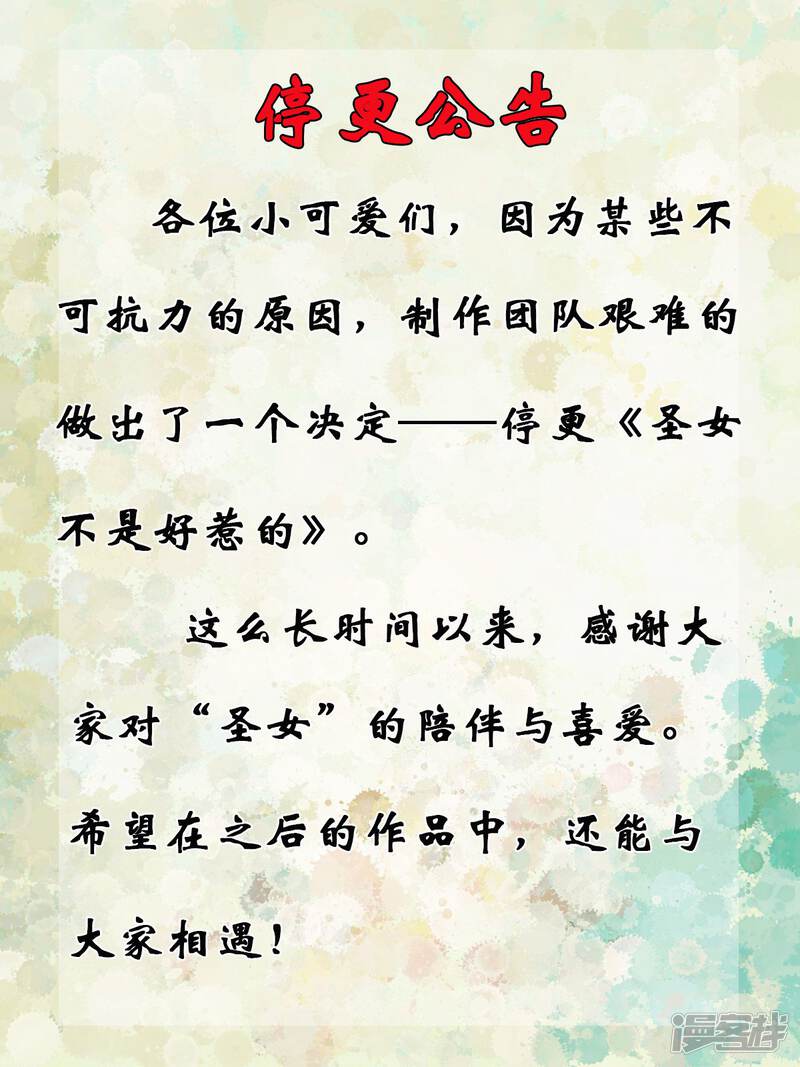 停更公告
各位小可爱们，因为某些不
可抗力的原因，制作团队艰难的
做出了一个决定——停更《圣女
不是好惹的》。
这么长时间以来，感谢大
家对“圣女”的陪伴与喜爱。
希望在之后的作品中，还能与
大家相遇！
漫客栈